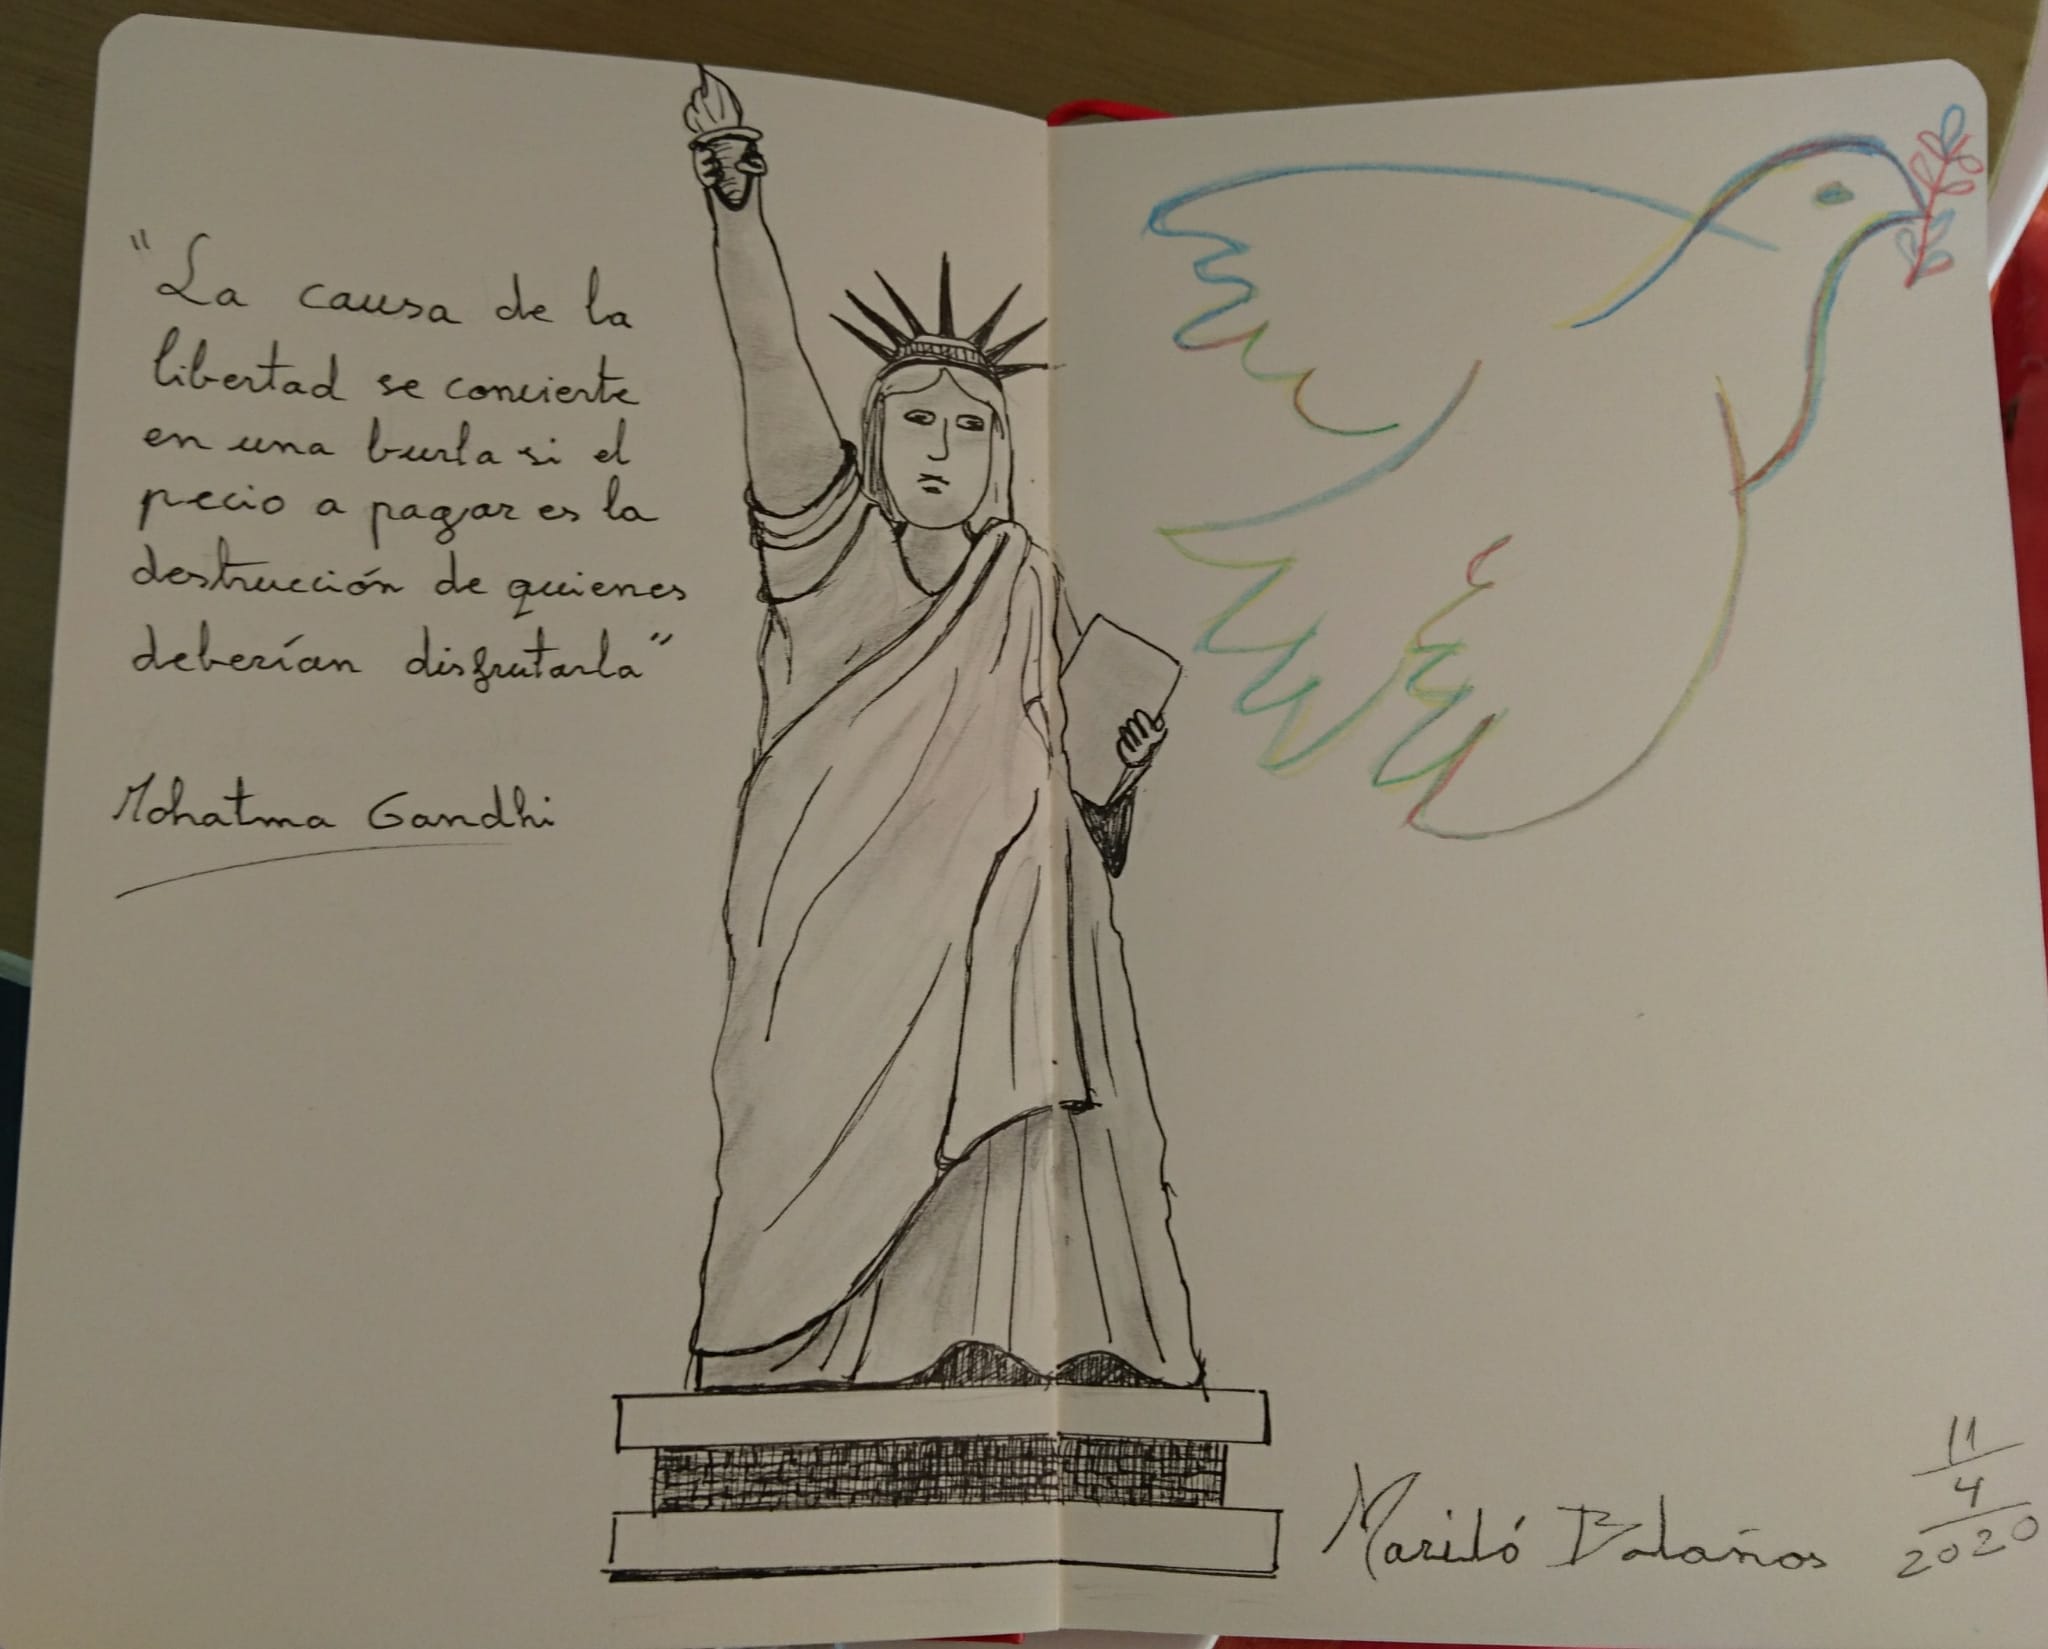 "La causa de la
libertad se convierte
en una burla si el
pecio a pagar es la
destrucción de quienes
deberían disfrutarla"
Mohatma Gandhi
Mariló Bolaños
11
4
2020